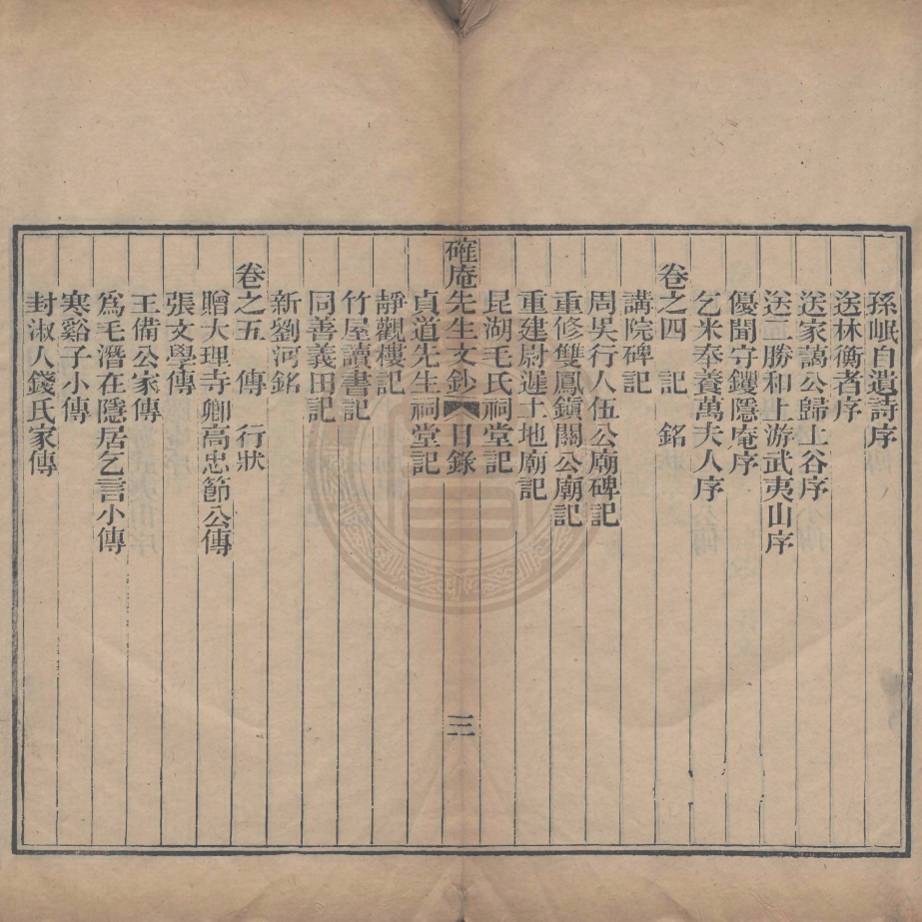 孫岷自遺詩序
送林衡者序
送家藹公歸上谷序
送二勝和上游武夷山序
優聞守鑳隱庵序
乞米奉養萬夫人序
卷之四 記 銘
講院碑記
周吳行人伍公廟碑記
重修雙鳳鎮關公廟記
重建尉遲土地廟記
昆湖毛氏祠堂記
確庵先生文鈔 目錄 三
貞道先生祠堂記
靜觀樓記
竹屋讀書記
同善義田記
新劉河銘
卷之五 傳 行狀
贈大理寺卿高忠節公傳
張文學傳
王備公家傳
爲毛潛在隱居乞言小傳
寒谿子小傳
封淑人錢氏家傳